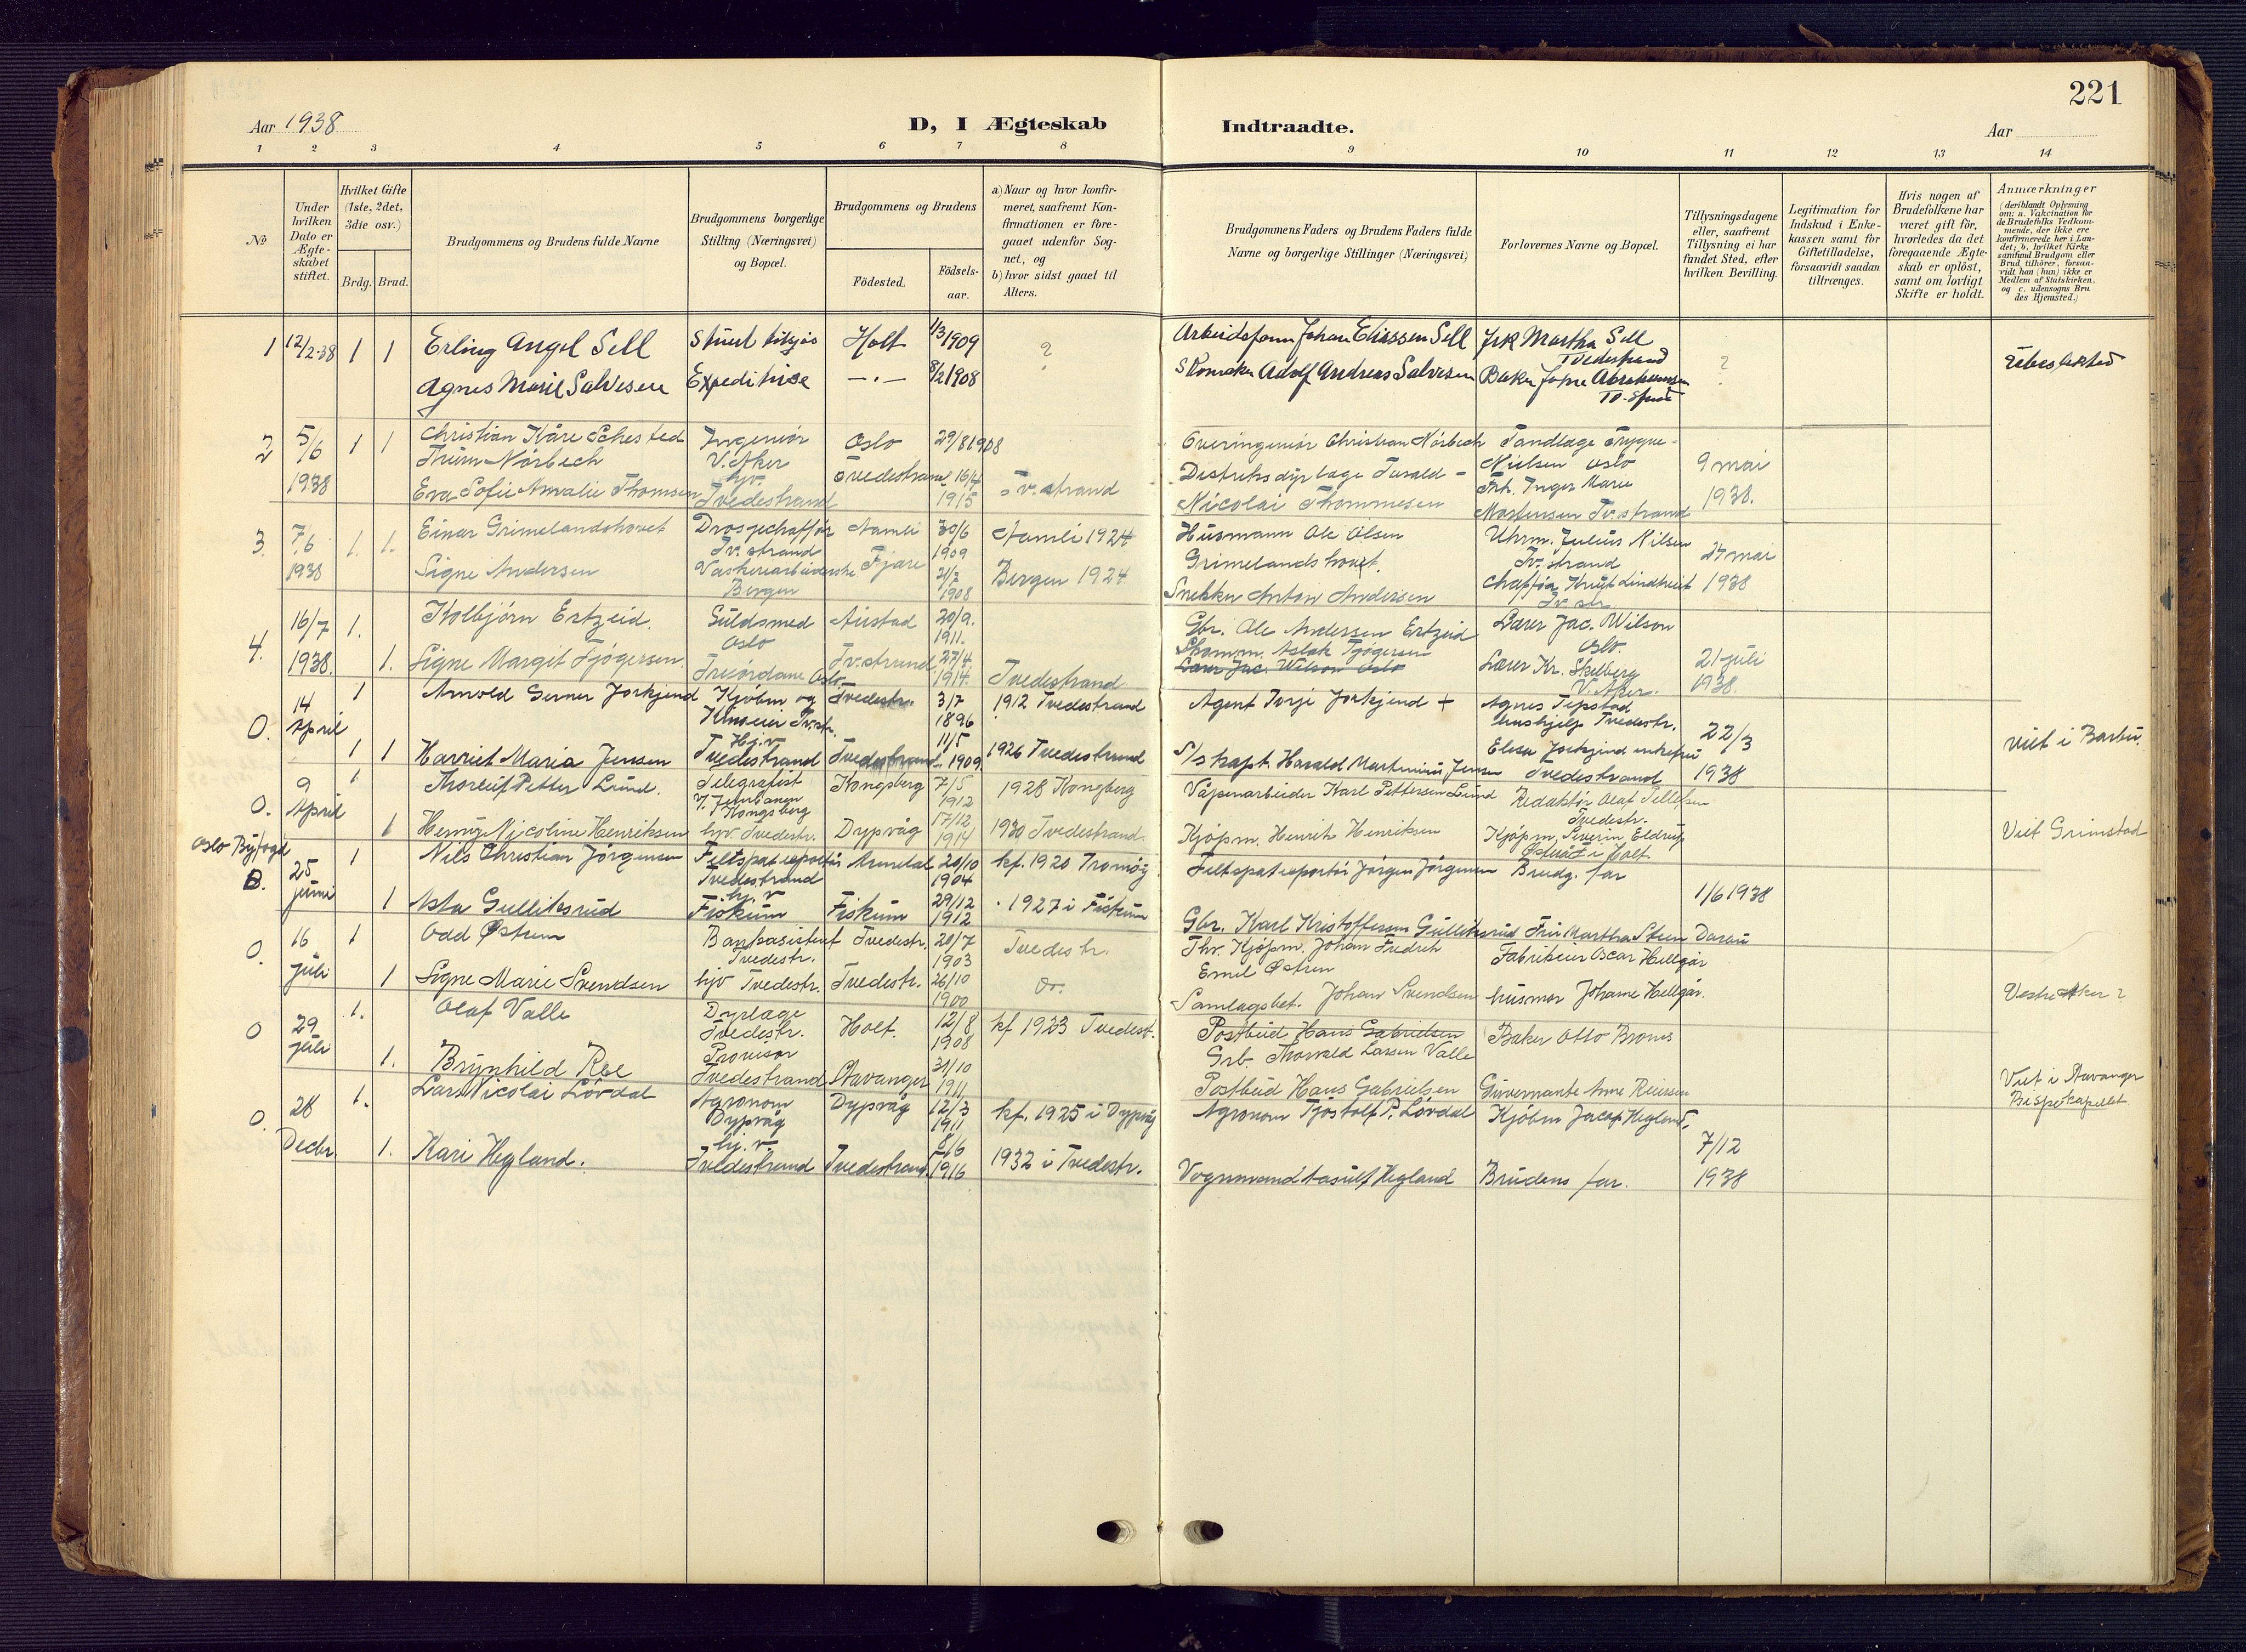 221
Aar 1938
D, I Ægteskab Indtraadte.
Aar
1 2 3 4 5 6 7 8 9 10 11 12 13 14
No
Under hvilken Dato er Ægteskabet stiftet.
Hvilket Gifte (1ste, 2det, 3die osv.)
Brdg. Brud.
Brudgommens og Brudens fulde Navne
Brudgommens borgerlige Stilling (Næringsvei) og Bopæl.
Brudgommens og Brudens
Fødested.
Fødsels-aar.
a) Naar og hvor konfir-
meret, saafremt Kon-
firmationen er fore-
gaaet udenfor Sog-
net, og
b) hvor sidst gaaet til
Alters.
Brudgommens Faders og Brudens Faders fulde
Navne og borgerlige Stillinger (Næringsvei)
Forlovernes Navne og Bopæl.
Tillysningsdagene
eller, saafremt
Tillysning ei har
fundet Sted, efter
hvilken Bevilling.
Legitimation for
Indskud i Enke-
kassen samt for
Giftetilladelse,
forsaavidt saadan
tiltrænges.
Hvis nogen af
Brudefolkene har
været gift før,
hvorledes da det
foregaaende Ægte-
skab er opløst,
samt om lovligt
Skifte er holdt.
Anmærkninger
(deriblandt Oplysning
om: a. Vakcination for
de Brudefolks Vedkom-
mende, der ikke ere
konfirmerede her i Lan-
det; b. hvilket Kirke
samfund Brudgom eller
Brud tilhører, forsaa-
vidt han (hun) ikke er
Medlem af Statskirken,
og c. udensogns Bru
des Hjemsted.)
1 12/2-38 1 1 Erling Angel Sell Holt 1/3 1909 ? Johan Eliassen Sell Frk Martha Sell
Tvedestrand
Agnes Marie Salvesen Expeditrise —.— 8/2 1908 Skomaker Adolf Andreas Salvesen Baker ?
2 5/6 1 1 Christian Kåre Schested Ingeniør Oslo 29/8 1908 Overingeniør Christian Nörbech Tandlæge Trygve
Thum Nörbech V. Aker Nielsen Oslo 9 mai
1938 Eva Sofie Amalie Thomsen hjv. Tvedestrand 16/4 Tv.strand Frk. Inger Marie
Tvedestrand 1915 Nicolai Thommesen Mortensen Tv.strand 1938.
3. 7/6 1. 1. Einar Grimelandshovet Drosjechaffør Aamli 30/6 Aamli 1924 Husmann Ole Olsen Uhrm. Julius Nilsen
Tv.strand 1909 Grimelandshovet. Tv.strand 24 mai
1938 Signe Andersen Fjære 2/7 Bergen 1924 Chaffør Knut Lindtveit 1938
Bergen 1908 Snekker Anton Andersen Tv.str
4. 16/7 1. Kolbjörn Ertzeid. Guldsmed 20/9. Gbr. Ole Andersen Ertzeid Lærer Jac. Wilson
Oslo 1911. Oslo.
1938. 1. Signe Margit Tjögersen. Tv.strand 27/4. Aslak Tjögersen 21 juli
Oslo 1914. Tvedestrand Lærer Jac. Wilson Oslo Lærer Kr. V. Aker. 1938.
O. 14 April 1 Arnold Gerner Kjøbm og Tvedestr. 3/7 1896 1912 Tvedestrand Agent Torje + Agnes
hushjelp Tvedestr. 22/3 viet i Barbu.
1 1 Harriet Maria Jensen Hj.v Tvedestrand Tvedestrand 11/5 1909 1926 Tvedestrand S/s kapt. Harald Martinius Jensen Tvedestrand 1938
O. 9 April 1 Thoreif Petter Lund. Telegrafist Kongsberg 7/5 1912 1928 Kongberg Våpenarbeider Karl Pettersen Lund Redaktør Olaf Tellefsen
Kongsberg Tvedestr.
1 Henny Nicoline Henriksen hjv. Tvedestr. Dypvåg 17/12 1914 1930 Tvedestrand. Kjöpm. Henrik Henriksen Kjöpm. Severin Eldrup Viet Grimstad
Holt.
Oslo Byfogd
O. 25 juni 1 Nils Christian Jörgensen Feltspateksportør Arendal 20/10 1904 kf. 1920 Tromöy Feltspateksportør Jörgen Jörgensen Brudg. far
Tvedestrand
1 Asta Gulliksrud hj.v Fiskum Fiskum 29/12 1912 1927 i Fiskum 1/6 1938
Gbr. Karl Kristoffersen Gulliksrud Fru Martha Steen
O. 16 juli 1 Odd Østrem Bankasistent Tvedestr. 20/7 1903 Tvedestr. Thv. Kjöpm. Johan Fredrik Fabrikeier Oscar Hellgår
Tvedestr. Emil Østren
1 Signe Marie Svendsen hjv Tvedestr. Tvedestr. 26/10 1900 Do. Samlagsbet. Johan Svendsen husmor Johanne Hellgår. Vestre Aker ?
O 29 juli 1. Olaf Valle Dyrlæge Holt. 12/8 1908 kf 1923 Tvedest. Postbud Hans Gabrielsen Baker Otto Bromes
Tvedestr. Grb. Thorvald Larsen Valle
1. Brynhild Ree Provisor Tvedestrand Stavanger 31/10 1911 Postbud Hans Gabrielsen Guvernante Anne Viet i Stavanger
Bispekapellet.
O. 28 Decbr. 1. Lars Nicolai Lövdal Agronom Dypvåg 12/3 1911 kf. 1925 i Dypvåg Agronom Tjostolf P. Lövdal Kjöbm Jacob Hegland,
Dypvåg
1. Kari Hegland. hj.v. Tvedestrand Tvedestrand. 8/6 1916 1932 i Tvedestr. Vognmand Hegland Brudens far. 7/12 1938